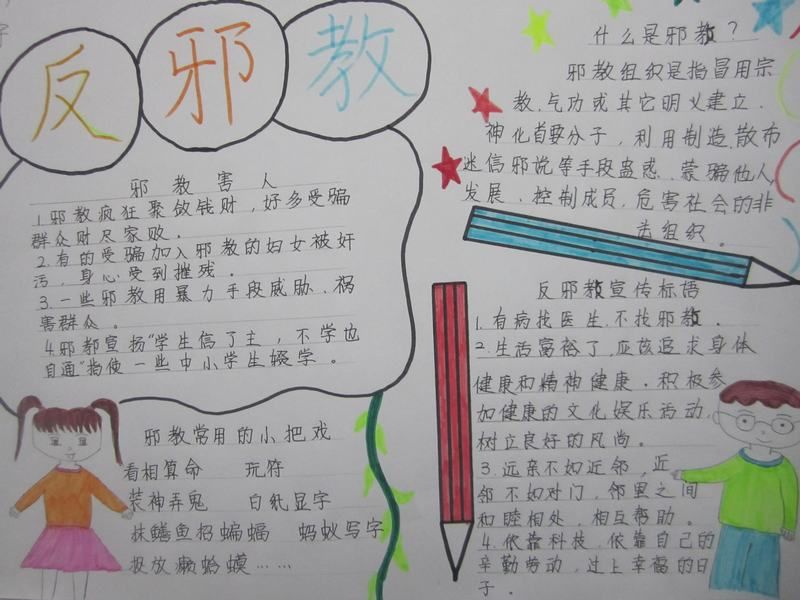 反邪教
邪教害人
1.邪教疯狂聚敛钱财，好多受骗
群众财尽家败。
2.有的受骗加入邪教的妇女被奸
污，身心受到摧残。
3.一些邪教用暴力手段威胁、祸
害群众。
4.邪都宣扬“学生信了主，不学也
自通”指使一些中小学生缀学。
邪教常用的小把戏
看相算命 玩符
装神弄鬼 白纸显字
抹鳝鱼招蝙蝠 蚂蚁写字
投放癞蛤蟆……
什么是邪教？
邪教组织是指冒用宗
教、气功或其它明义建立、
神化首要分子，利用制造、散布
迷信邪说等手段蛊惑、蒙骗他人
发展、控制成员，危害社会的非
法组织。
反邪教宣传标语
1.有病找医生，不找邪教。
2.生活富裕了，应该追求身体
健康和精神健康。积极参
加健康的文化娱乐活动，
树立良好的风尚。
3.远亲不如近邻，近
邻不如对门，邻里之间
和睦相处，相互帮助。
4.依靠科技，依靠自己的
辛勤劳动，过上幸福的日
子。